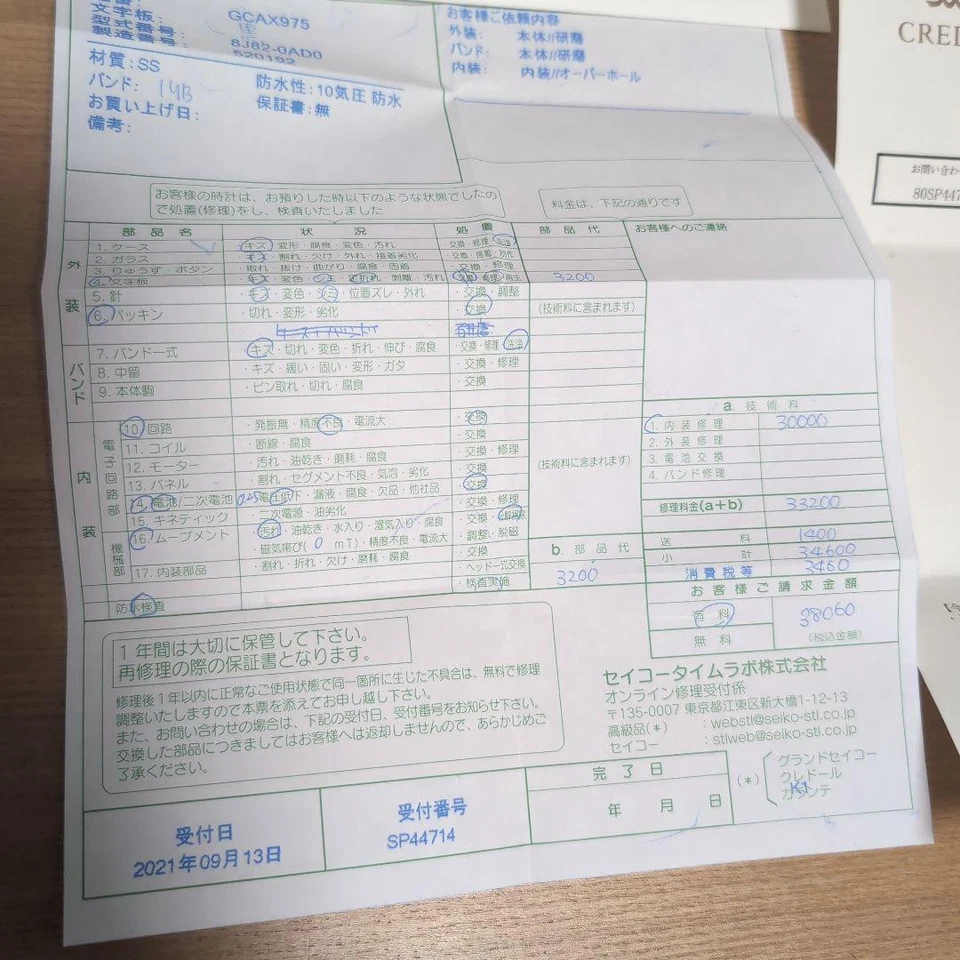 文字板: GCAX975
型式番号: 8J82-0AD0
製造番号: 520192
材質:SS
バンド: 防水性:10気圧 防水
お買い上げ日: 保証書:無
備考:
お客様ご依頼内容
外装: 本体//研磨
バンド: 本体//研磨
内装: 内装//オーバーホール
CRED
お問い合わ
80SP447
お客様の時計は、お預りした時以下のような状態でしたの
で処置(修理)をし、検査いたしました
料金は、下記の通りです
部品名 状況 処置 部品代 お客様へのご連絡
外装
1.ケース キズ・変形・腐食・変色・汚れ 交換・修理・洗浄
2.ガラス キズ・割れ・欠け・外れ・接着劣化 交換・接着
3.りゅうず・ボタン 取れ・抜け・曲がり・腐食・固着 交換・修理
4.文字板 キズ・変色・シミ・足折れ・剥離・汚れ 交換・修理・再生 3200
5.針 キズ・変色・シミ・位置ズレ・外れ ・交換・調整
6.パッキン ・切れ・変形・劣化 ・交換 (技術料に含まれます)
バンド
7.バンド一式 キズ・切れ・変色・折れ・伸び・腐食 ・交換・修理・洗浄
8.中留 ・キズ・緩い・固い・変形・ガタ ・交換・修理
9.本体駒 ・ピン取れ・切れ・腐食 ・交換
内装
電子回路部
10.回路 ・発振無・精度不良・電流大 ・交換
11.コイル ・断線・腐食 ・交換
12.モーター ・汚れ・油乾き・磨耗・腐食 ・交換・修理
13.パネル ・割れ・セグメント不良・気泡・劣化 ・交換
(技術料に含まれます)
14.電池/二次電池 電圧低下・漏液・腐食・欠品・他社品 ・交換
15.キネティック ・二次電源・油劣化 ・交換・修理
機械部
16.ムーブメント 汚れ・油乾き・水入り・湿気入り・腐食 ・交換・分解掃除
・磁気帯び( 0 mT)・精度不良・電流大 ・調整・脱磁
17.内装部品 ・割れ・折れ・欠け・磨耗・腐食 ・交換
・ヘッド一式交換
防水検査 ・検査実施
b.部品代
3200
a.技術料
1.内装修理 30000
2.外装修理
3.電池交換
4.バンド修理
修理料金(a+b) 33200
送料 1400
小計 34600
消費税等 3460
お客様ご請求金額
有料 38060
無料 (税込金額)
1年間は大切に保管して下さい。
再修理の際の保証書となります。
修理後1年以内に正常なご使用状態で同一箇所に生じた不具合は、無料で修理
調整いたしますので本票を添えてお申し越し下さい。
また、お問い合わせの場合は、下記の受付日、受付番号をお知らせ下さい。
交換した部品につきましてはお客様へは返却しませんので、あらかじめご
了承ください。
セイコータイムラボ株式会社
オンライン修理受付係
〒135-0007 東京都江東区新大橋1-12-13
高級品(*) : webstl@seiko-stl.co.jp
セイコー : stlweb@seiko-stl.co.jp
(*) グランドセイコー
クレドール
ガランテ
受付日
2021年09月13日
受付番号
SP44714
完了日
年 月 日